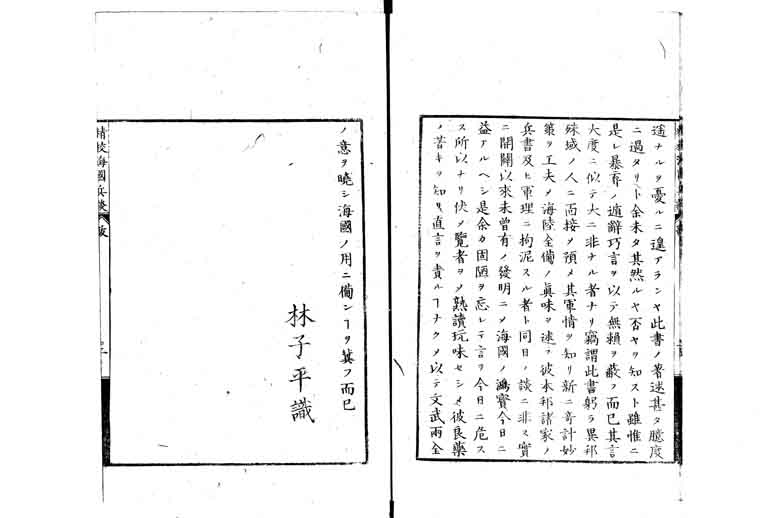 遥ナルヲ憂ルニ遑アランヤ此書ノ著述甚タ臆度
ニ過タリト余未タ其然ルヤ否ヤヲ知スト雖惟ニ
是レ暴弃ノ遁辭巧言ヲ以テ無賴ヲ蔽フ而已其言
大度ニ似テ大ニ非ナル者ナリ竊謂此書躬ラ異邦
殊域ノ人ニ面接メ預メ其軍情ヲ知リ新ニ奇計妙
策ヲ工夫メ海陸全備ノ眞味ヲ述フ彼本邦諸家ノ
兵書及ヒ軍理ニ拘泥スル者ト同日ノ談ニ非ス實
ニ開闢以來未曾有ノ發明ニメ海國ノ鴻寳今日ニ
益アルヘシ是余カ固陋ヲ忘レテ言ヲ今日ニ危ス
ス所以ナリ伏メ覽者ヲメ熟讀玩味セシメ彼良藥
ノ苦キヲ知リ直言ヲ責ルヿナクメ以テ文武兩全
ノ意ヲ曉シ海國ノ用ニ備ンヿヲ冀フ而已
林子平識
精校海國兵談 跋